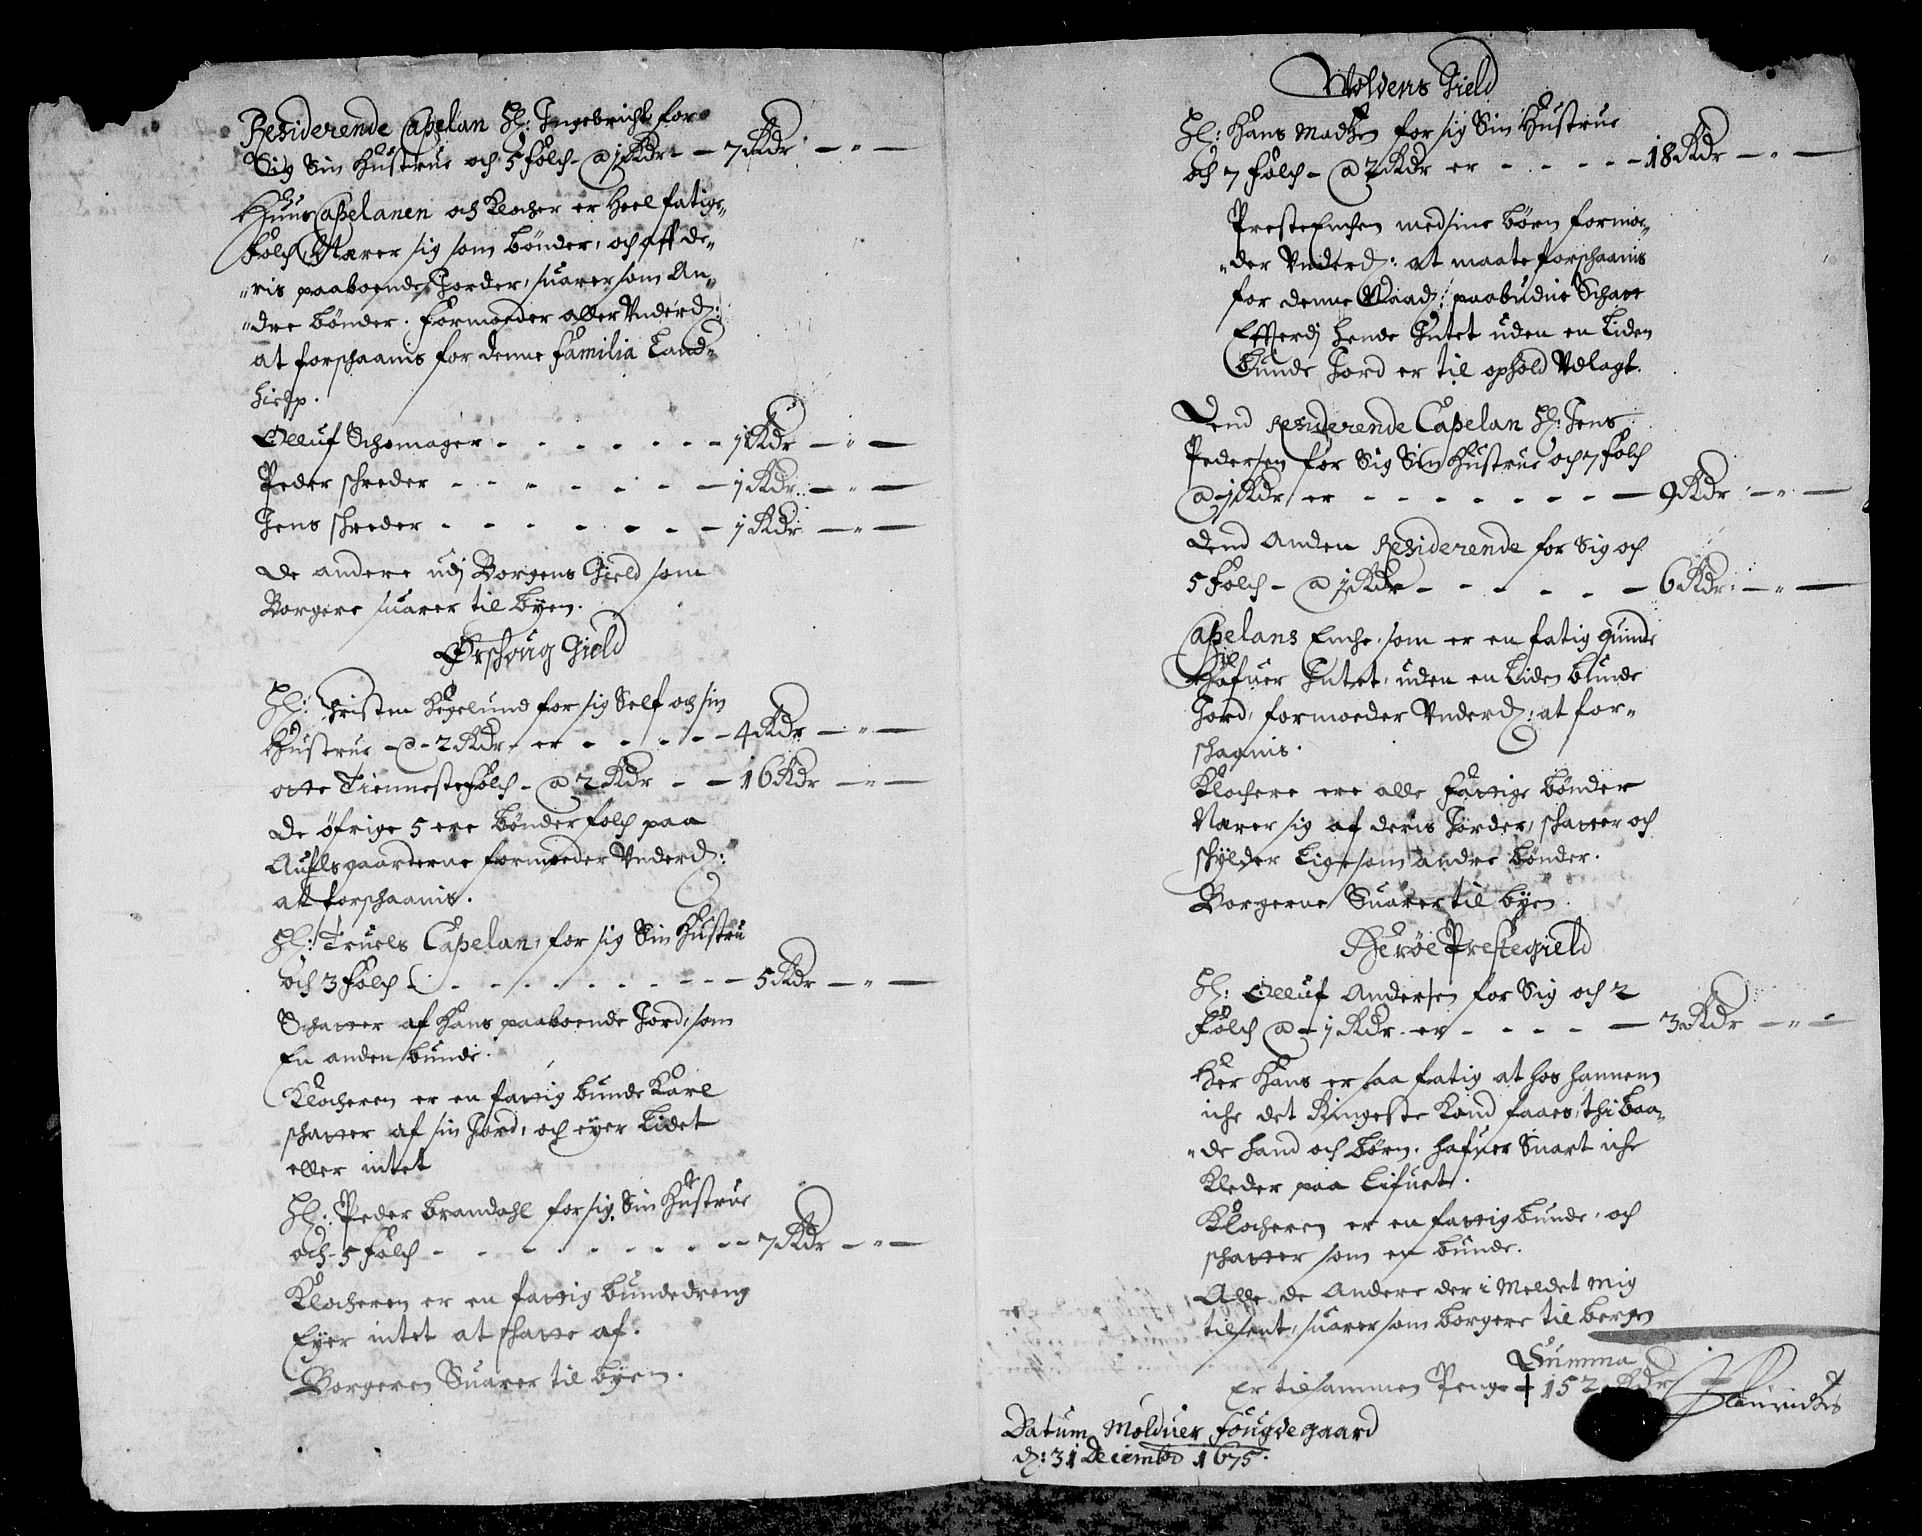 Residerende Capelan Hr: Ingebricht for
Sig Sin Hustrue och 5 folch - a 1 Rdr - - 7 Rdr - " -
Huus Capelanen och Klocher er heel fatige
folch, Nærer sig som bønder, och aff de-
"ris paaboende Jorder, suarer som An-
"dre bønder. formoeder aller Underd:
at forschaanis for denne Familia Land-
hielp.
Olluf Schomager - - - - - - 1 Rdr - " -
Peder schreder - - - - - - 1 Rdr - " -
Jens schreder - - - - - - 1 Rdr - " -
De andere udj Borgens Gield som
Borgere suarer til byen.
Ørschoug Gield
Hr: Christen Hegelund for sig Self och sin
Hustrue - a - 2 Rdr - er - - - - 4 Rdr - " -
otte Tiennestefolch - a 2 Rdr - - 16 Rdr - " -
De øfrige 5 ere bønderfolch paa
Auflsgaarderne formoeder Underd:
at forschaanis.
Hr: Truels Capelan, for sig Sin Hustru
och 3 folch - - - - - - - 5 Rdr - " -
Schatter af hans paaboende Jord, som
En anden bunde.
Klocheren er en fattig bunde Karl
schatter af sin Jord, och eyer Lidet
eller intet
Hr: Peder Brandahl for sig, Sin Hustrue
och 5 folch - - - - - - - 7 Rdr - " -
Klocheren er en fattig bundedreng
Eyer intet at schatte af.
Borgeren Suarer til byen.
Woldens Gield
Hr: Hans Madtzen for sig Sin Hustrue
och 7 folch - a 2 Rdr er - - - - 18 Rdr - " -
PresteEnchen med sine børn formoe-
"der Underd: at maate forschaanis
for denne Naad: paabudne Schatt
Effterdj hende Intet uden en Liden
bunde Jord er til ophold Udlagt.
Dend Residerende Capelan Hr: Jens
Pedersen for Sig Sin Hustrue och 7 folch
a 1 Rdr er - - - - - - - 9 Rdr - " -
Dend Anden Residerende for Sig och
5 folch - a 1 Rdr - - - - - 6 Rdr - " -
Capelans Enche, som er en fatig quinde
hafuer Intet, uden en Liden bunde
Jord, formoeder Underd: at for-
schaanis.
Klochere ere alle fattige bønder
Nærer sig af deris Jorder, schatter och
schylder Lige som andre bønder.
Borgerne Suarer til byen.
Herøe Prestegield
Hr: Olluf Andersen for Sig och 2
folch a - 1 Rdr - er - - - - 3 Rdr - " -
Her Hans er saa fatig at hos hannem
iche det Ringeste Kand faaes, thi baa-
"de hand och børn, hafuer Snart iche
Kleder paa Lifuet.
Klocheren er en fattig bunde, och
schatter som en bunde.
Alle de Andere der i Meldet mig
tilsent, suarer som borgere til bergen
Summa
Er tilsammen Penge - 152 Rdr
Datum Molduer fougdegaard
d: 31 Decembr 1675.